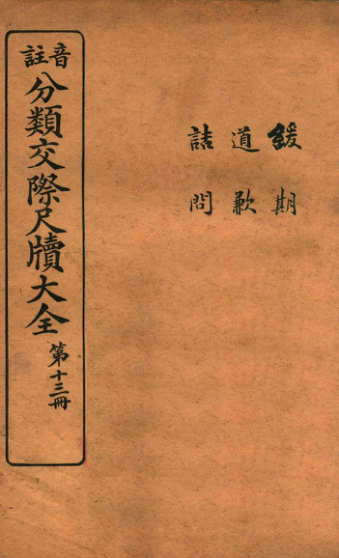 音註
分類交際尺牘大全
第十三冊
緩期
道歉
詰問